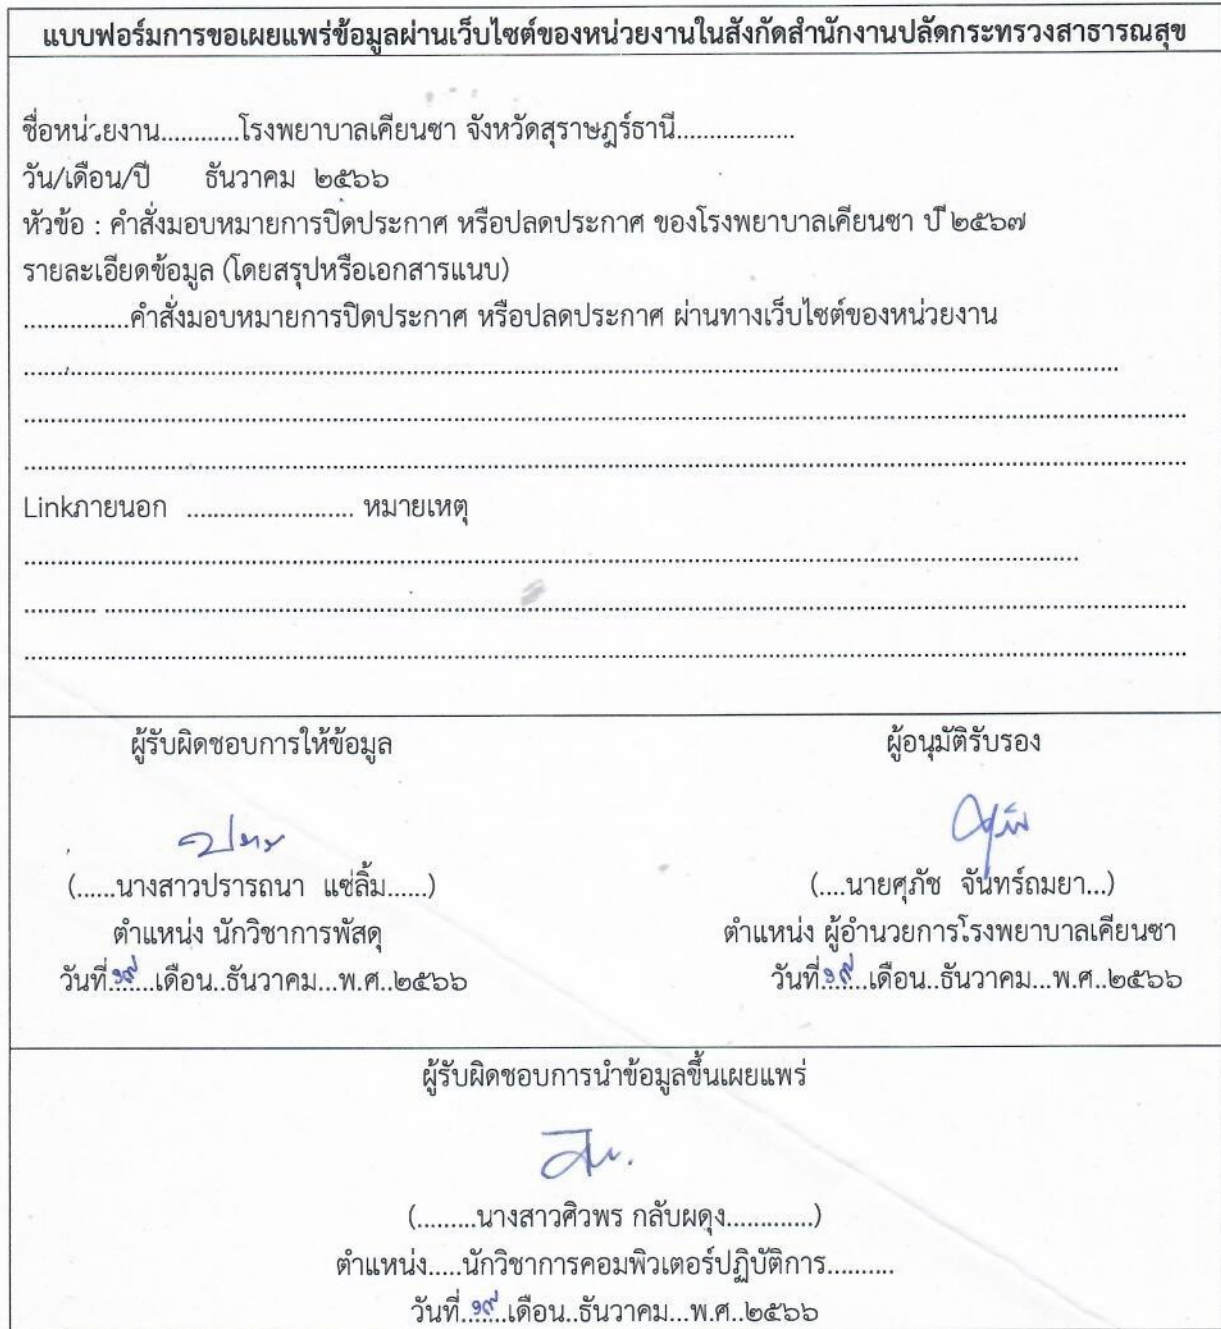 แบบฟอร์มการขอเผยแพร่ข้อมูลผ่านเว็บไซต์ของหน่วยงานในสังกัดสำนักงานปลัดกระทรวงสาธารณสุข
ชื่อหน่วยงาน............โรงพยาบาลเคียนซา จังหวัดสุราษฎร์ธานี..................
วัน/เดือน/ปี ธันวาคม ๒๕๖๖
หัวข้อ : คำสั่งมอบหมายการปิดประกาศ หรือปลดประกาศ ของโรงพยาบาลเคียนซา ปี ๒๕๖๗
รายละเอียดข้อมูล (โดยสรุปหรือเอกสารแนบ)
................คำสั่งมอบหมายการปิดประกาศ หรือปลดประกาศ ผ่านทางเว็บไซต์ของหน่วยงาน
Linkภายนอก ......................... หมายเหตุ
ผู้รับผิดชอบการให้ข้อมูล
(......นางสาวปรารถนา แซ่ลิ้ม......)
ตำแหน่ง นักวิชาการพัสดุ
วันที่.๑๙...เดือน..ธันวาคม...พ.ศ..๒๕๖๖
ผู้อนุมัติรับรอง
(....นายศุภัช จันทร์ถมยา...)
ตำแหน่ง ผู้อำนวยการโรงพยาบาลเคียนซา
วันที่.๑๙...เดือน..ธันวาคม...พ.ศ..๒๕๖๖
ผู้รับผิดชอบการนำข้อมูลขึ้นเผยแพร่
(.........นางสาวศิวพร กลับผดุง.............)
ตำแหน่ง.....นักวิชาการคอมพิวเตอร์ปฏิบัติการ..........
วันที่.๑๙...เดือน..ธันวาคม...พ.ศ..๒๕๖๖